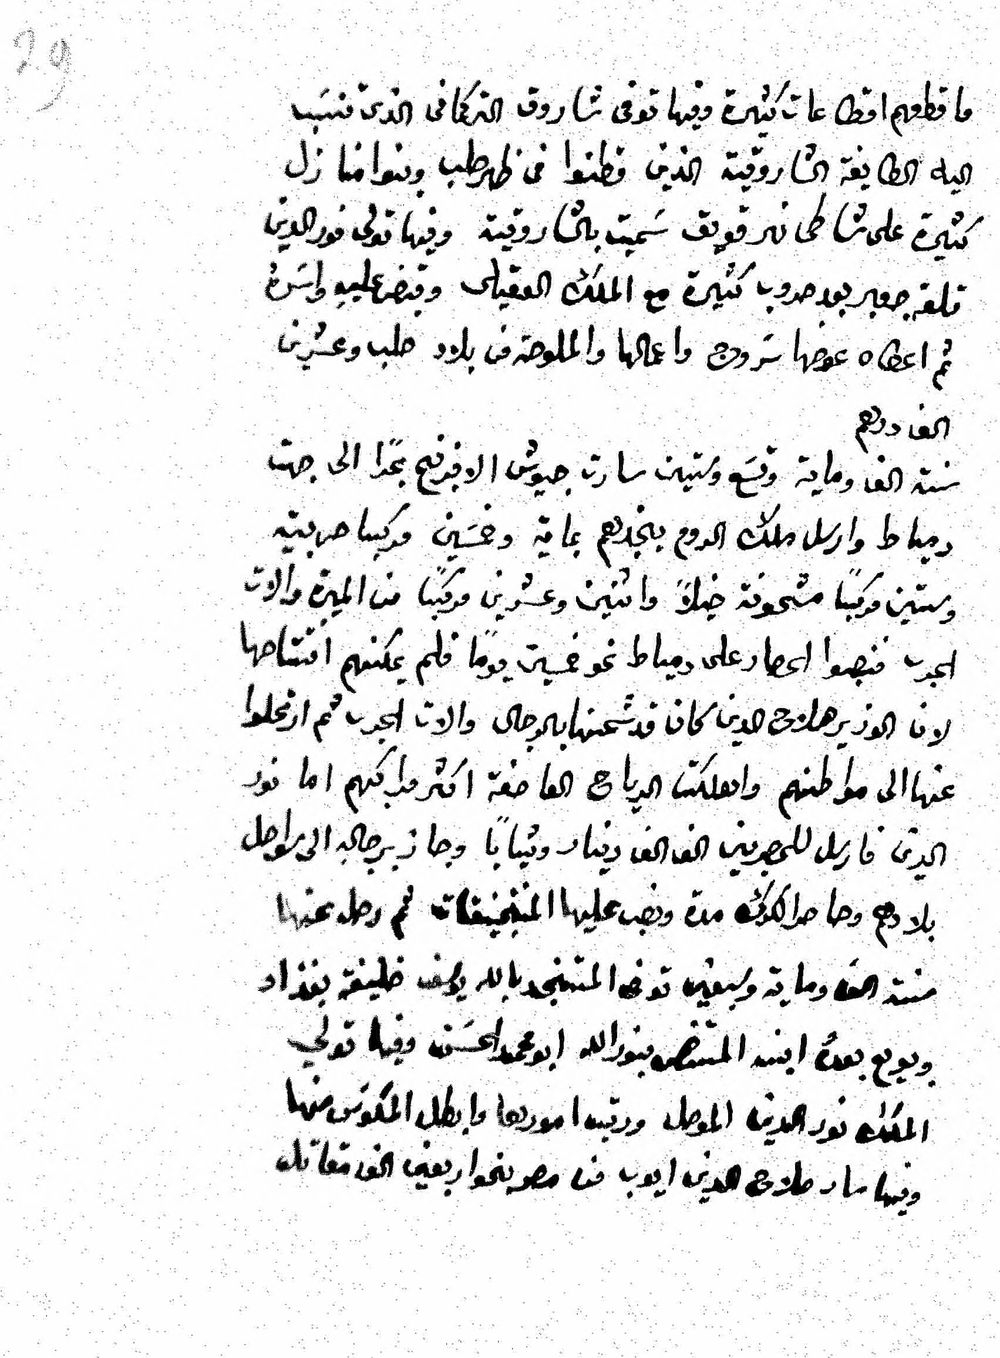 29
فاقطعهم اقطاعات كثيرة وفيها توفى شاروق التركمانى الذى تنسَب
اليه الطايفة الشاروقية الذين قطنوا فى ظهر حلب وبنوا منازل
كثيرة على شاطى نهر قويق سَميت بالشاروقية وفيها تولى نور الدين
قلعة جعبر بعد حروب كثيرة مع الملك العقيلى وقبض عليه واسَرهُ
ثم اعطاه عوضها سَروج واعمالها والملوحة من بلاد حلب وعشرين
الف درهم
سنة الف وماية وتسَع وستين سارت جيوش الافرنج بحرًا الى جهت
دمياط وارسل ملك الروم ينجدهم بماية وخمسَين مركبًا حربية
وستين مركبًا مشحونة خيلاً واثنين وعشرين مركبًا من الميرة والات
الحرب فنصبوا الحصار على دمياط نحو خمسين يومًا فلم يمكنهم افتتاحها
لان الوزير صلاح الدين كان قد شحنها بالرجال والات الحرب ثم ارتحلوا
عنها الى مواطنهم واهلكت الرياح العاصفة اكثر مراكبهم اما نور
الدين فارسل للمصريين الف الف دينار وثيابًا وجاز برجاله الى سواحل
بلادهم وحاصر الكرك مدة ونصب عليها المنجنيقات ثم رحل عنها
سنة الف وماية وسبعين توفى المستنجد بالله يوسف خليفة بغداد
وبويع بعدهُ ابنه المستضى بنور الله ابو محمد الحسَن وفيها تولي
الملك نور الدين الموصل ورتب امورها وابطل المكوسَ منها
وفيها سار صلاح الدين ايوب من مصر بنحو اربعين الف مقاتل